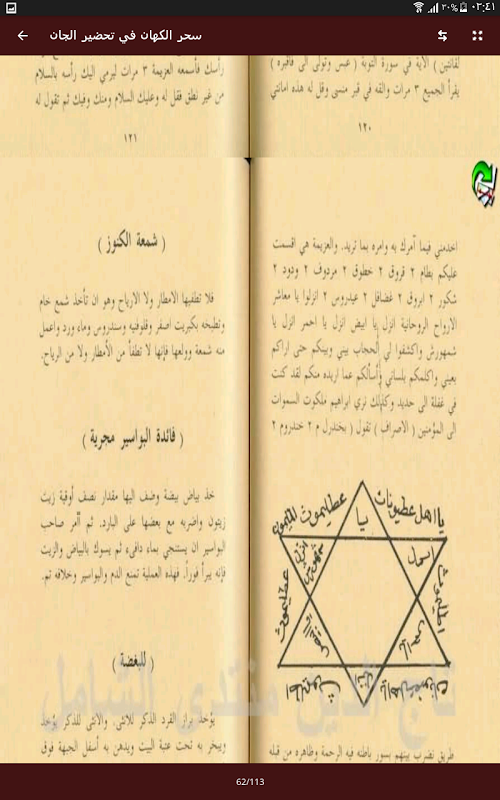 ٠٢:٤١
٢٠%
سحر الكهان في تحضير الجان
لقانتين ) الآية في سورة التوبة ( عبس وتولى الى فاقبره )
يقرأ الجميع ٣ مرات والقه في قبر منسى وقل له هذه امانتي
١٢٠
رأسك فأسمعه العزيمة ٣ مرات ليرمي اليك رأسه بالسلام
من غير نطق فقل له وعليك السلام ومنك وفيك ثم تقول له
١٢١
اخدمني فيما آمرك به وامره بما تريد. والعزيمة هي اقسمت
عليكم بطام ٢ قروق ٢ خطوق ٢ مردوف ٢ ودود ٢
شكور ٢ ابروق ٢ غضافل ٢ عيدروس ٢ انزلوا يا معاشر
الارواح الروحانية انزل يا ابيض انزل يا احمر انزل يا
شمهورش واكشفوا لي الحجاب بيني وبينكم حتى اراكم
بعيني واكلمكم بلساني وأسألكم عما اريده منكم لقد كنت
في غفلة الى حديد وكذلك نري ابراهيم ملكوت السموات
الى المؤمنين ( الاصراف ) تقول ( بخندرل م ٢ خندروم ٢
يا اهل عطيونات
يا
عطايموت
طريق تضرب بينهم بسور باطنه فيه الرحمة وظاهره من قبله
( شمعة الكنوز )
فلا تطفيها الامطار ولا الارياح وهو ان تأخذ شمع خام
وتطبخه بكبريت اصفر وقلوفنيه وسندروس وماء ورد واعمل
منه شمعة وولعها فإنها لا تطفأ من الأمطار ولا من الرياح.
( فائدة البواسير مجربة )
خذ بياض بيضة وضف اليها مقدار نصف أوقية زيت
زيتون واضربه مع بعضها على البارد. ثم آمر صاحب
البواسير ان يستنجي بماء دافىء ثم يسوك بالبياض والزيت
فإنه يبرأ فوراً. فهذه العملية تمنع الدم والبواسير وخلافه تم.
( للبغضة )
يؤخذ براز القرد الذكر للانثى. والانثى للذكر يؤخذ
ويبخر به تحت عتبة البيت ويدهن به أسفل الجبهة فوق
62/113